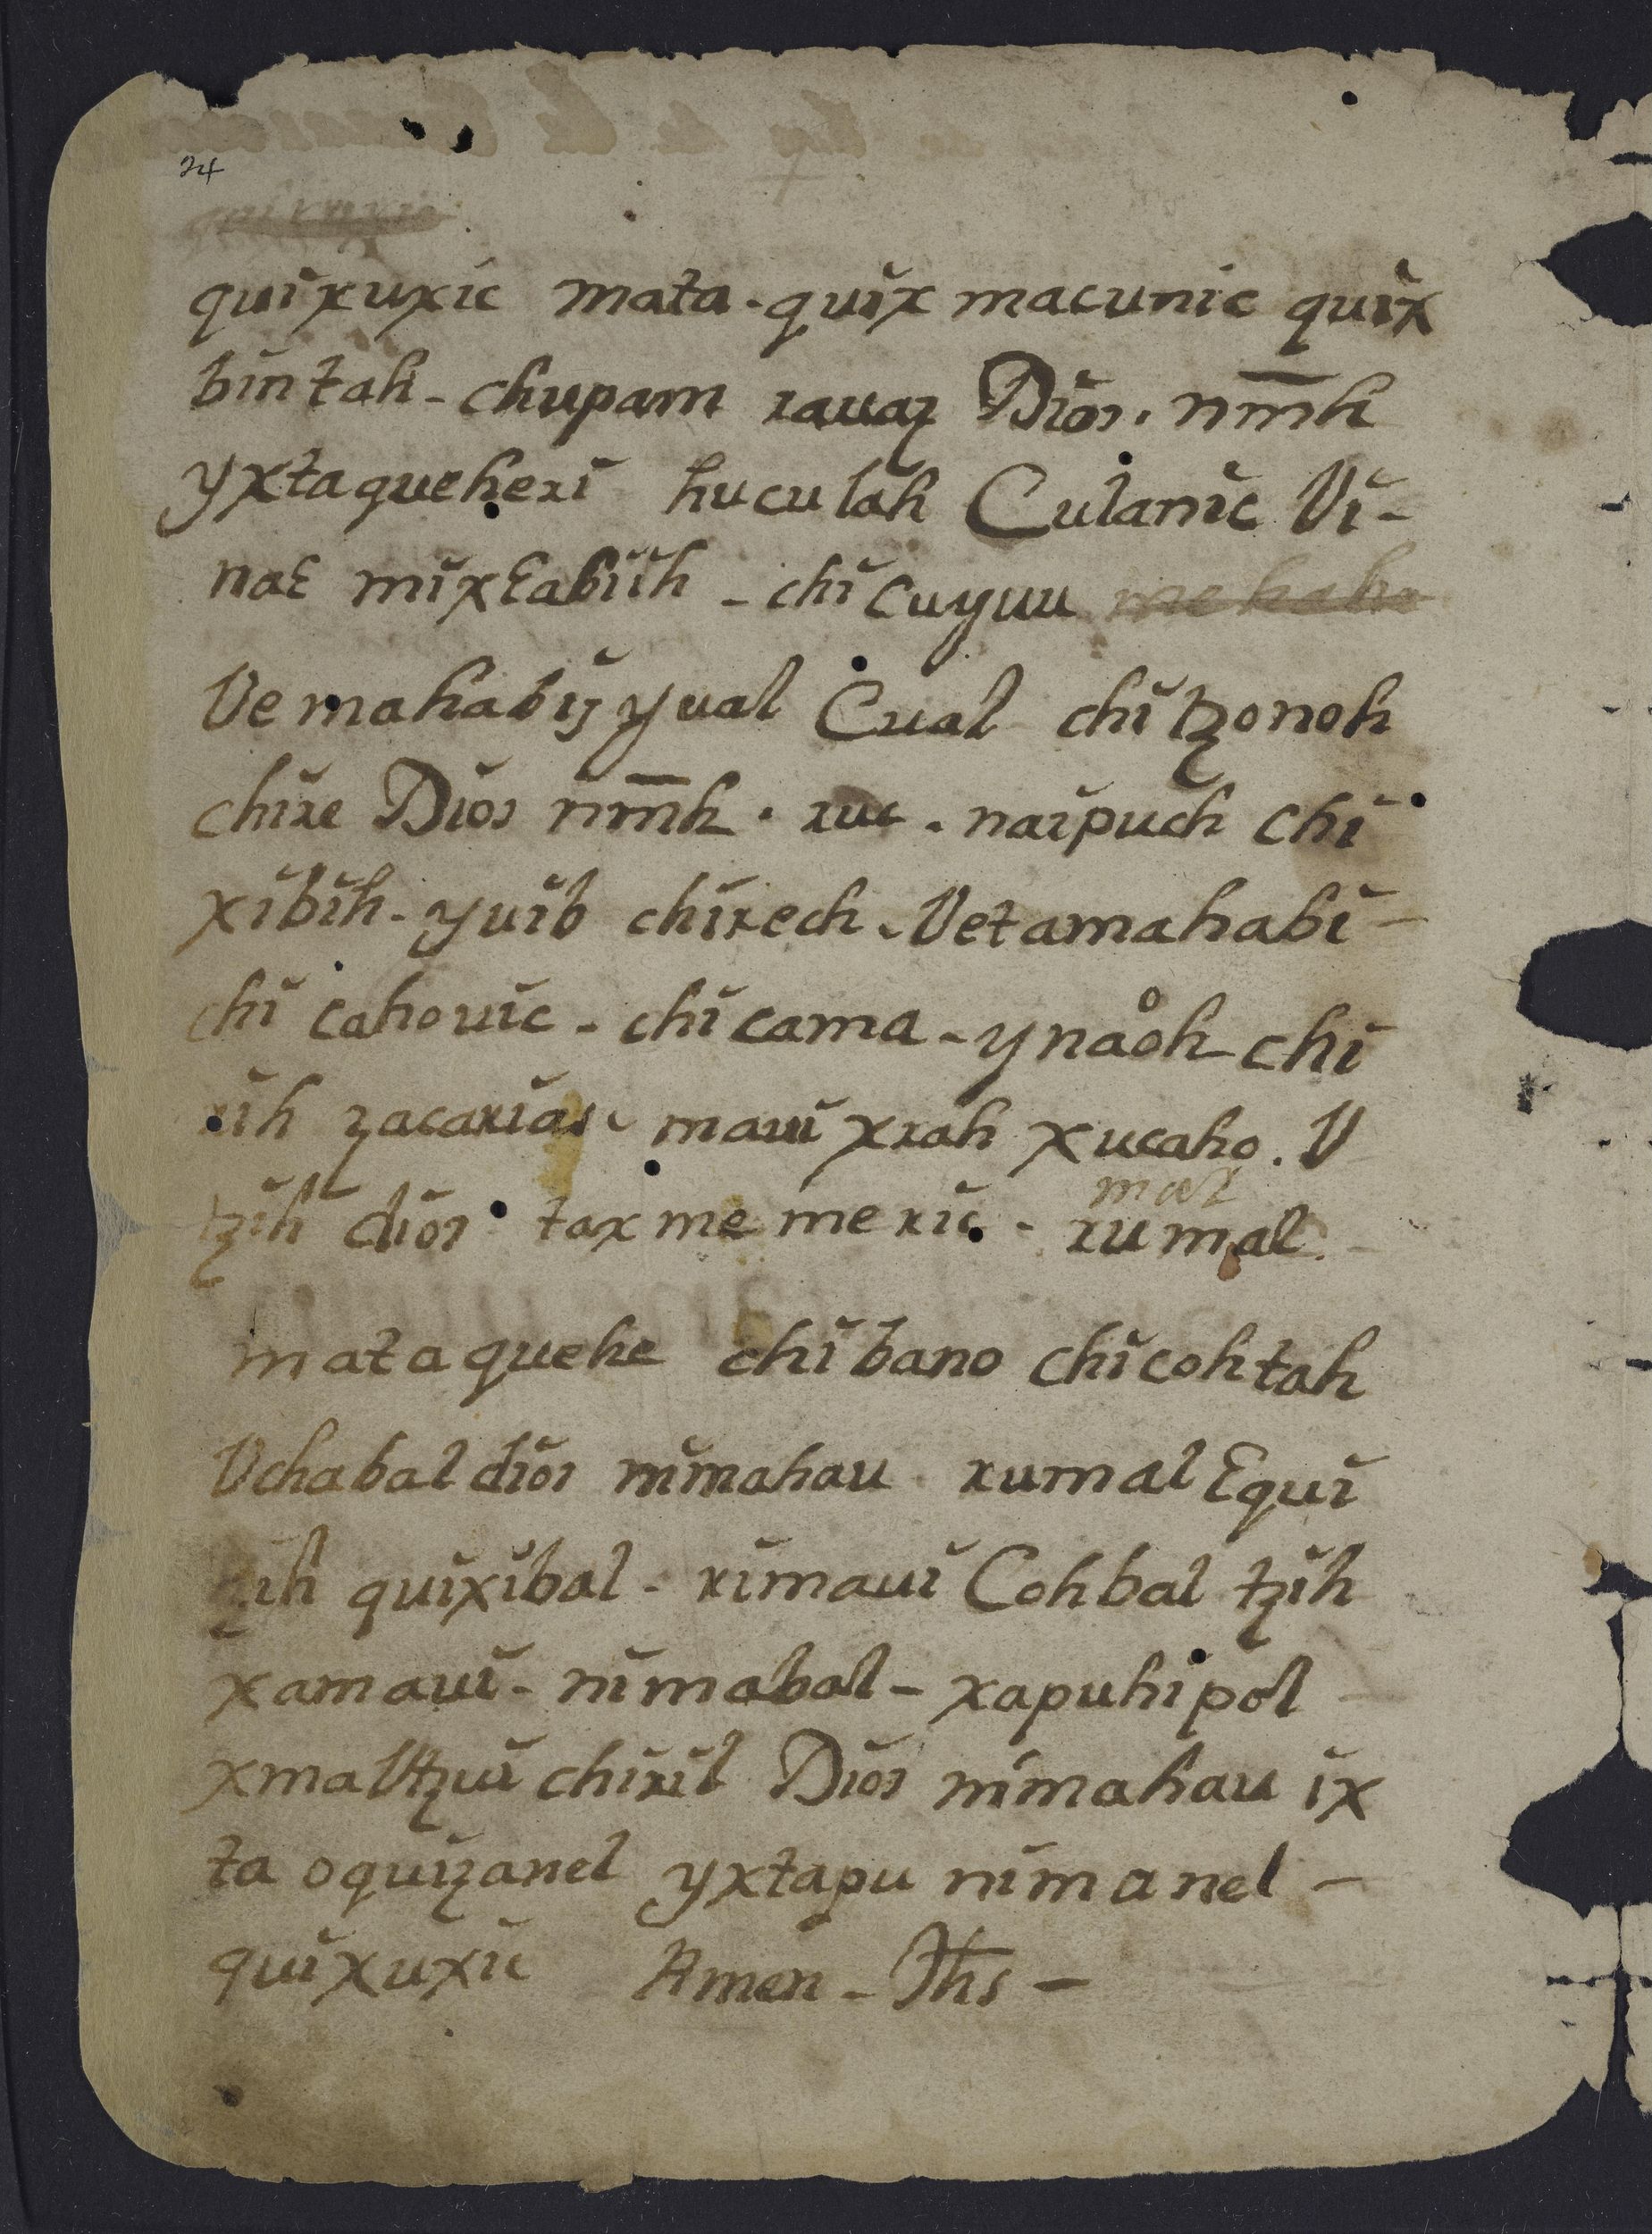 24
quixuxic mata - quix macunic quix
bintah - chupam rauaz Dios . nm̄h
yxtaqueheri huculah Culanic Vi-
naɛ mixɛabiih - chi Cuyuu
Ve mahabij yual Cual chi tzonoh
chire Dios nm̄h . ruc . naipuch chi
xibih - yuib chirech . Vetamahabi -
chi cahouic - chi cama - ynaoh chi
rih zacarias maui xrah xucaho . V
tzih dios tax me meric - rumal
mataquehe chi bano chicohtah
Vchabal dios nimahau rumal ɛqui
tzih quixibal - rimaui Cohbal tzih
xamaui - nimabal - xapuhipol
xmaltzui chiril Dios nimahau ix
ta oquizanel yxtapu nimanel -
quixuxic Amen - Jhs -